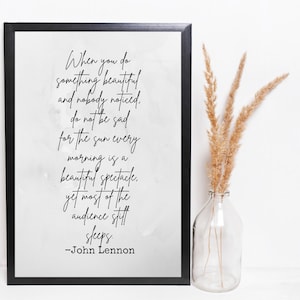 When you do
something beautiful
and nobody noticed,
do not be sad
for the sun every
morning is a
beautiful spectacle,
yet most of the
audience still
sleeps.
-John Lennon